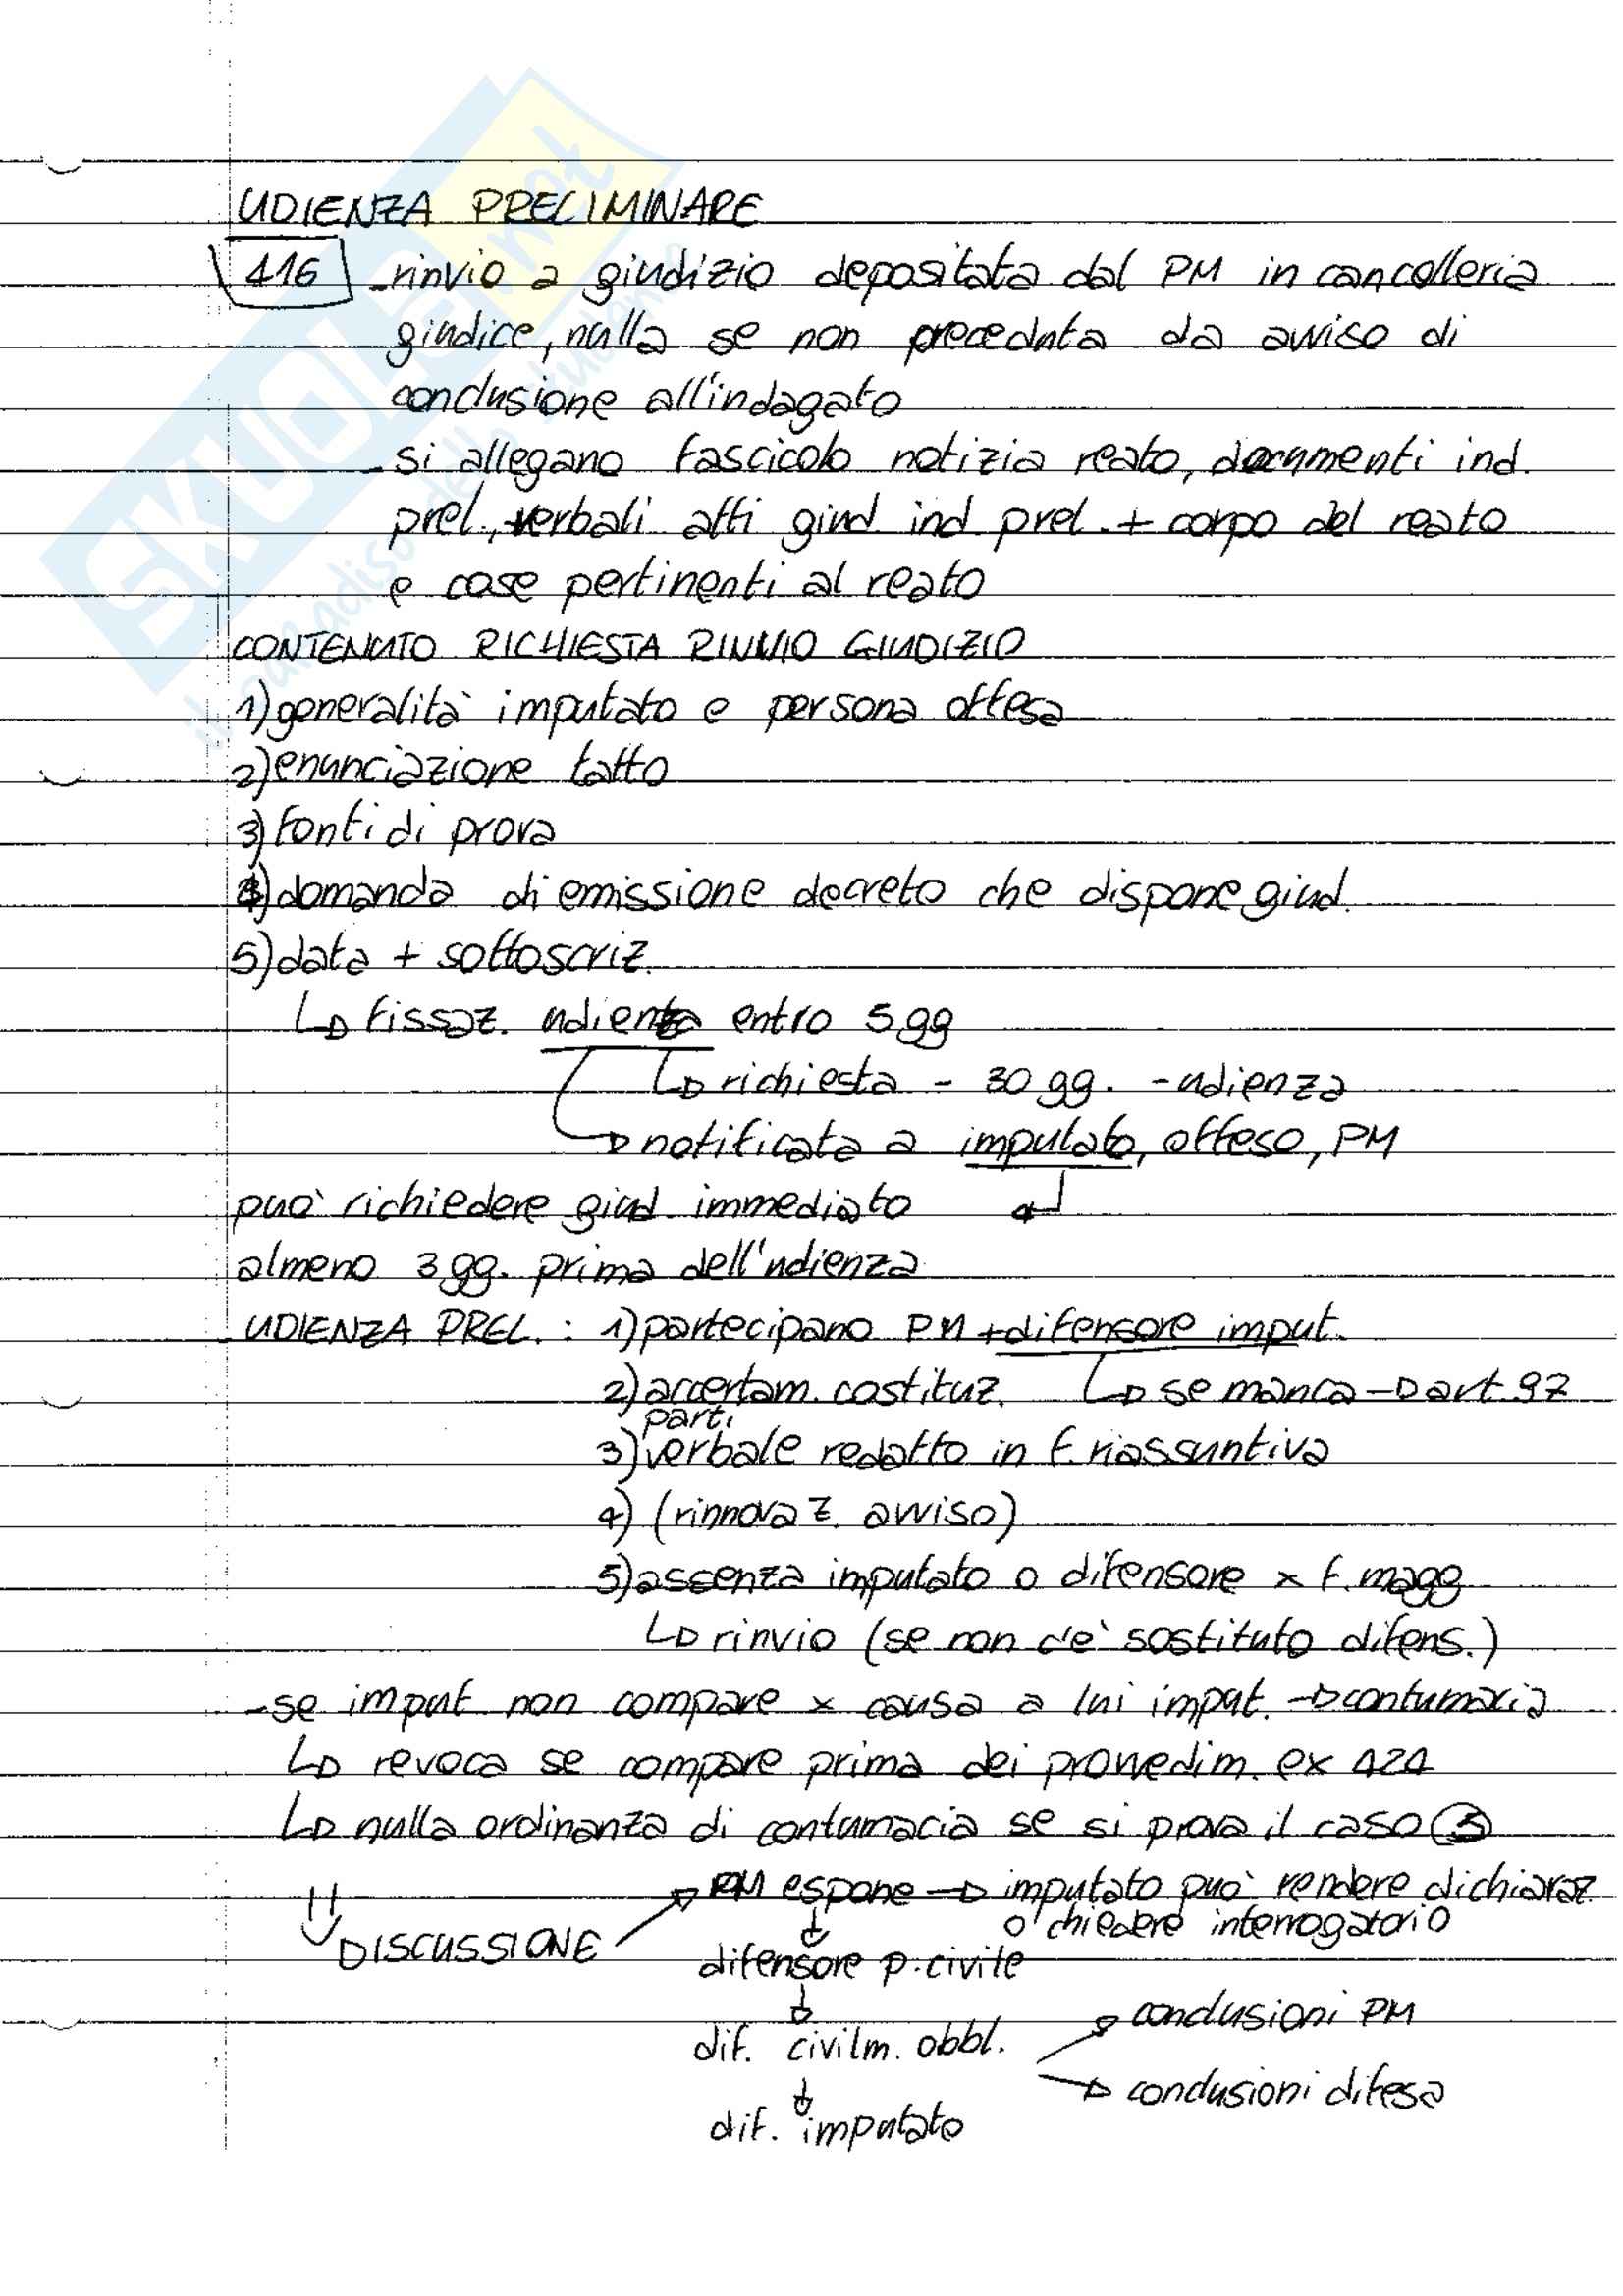 UDIENZA PRELIMINARE
416 - rinvio a giudizio depositata dal PM in cancelleria
giudice, nulla se non preceduta da avviso di
conclusione all'indagato
- si allegano fascicolo notizia reato, documenti ind.
prel., verbali atti giud. ind prel. + corpo del reato
e cose pertinenti al reato
CONTENUTO RICHIESTA RINVIO GIUDIZIO
1) generalità imputato e persona offesa
2) enunciazione fatto
3) fonti di prova
4) domanda di emissione decreto che dispone giud.
5) data + sottoscriz.
↳ fissaz. udienza entro 5 gg
↳ richiesta - 30 gg. - udienza
→ notificata a imputato, offeso, PM
può richiedere giud. immediato ↲
almeno 3 gg. prima dell'udienza
UDIENZA PREL. : 1) partecipano PM + difensore imput.
2) accertam. costituz. ↳ se manca → art. 97
parti
3) verbale redatto in f. riassuntiva
4) (rinnovaz. avviso)
5) assenza imputato o difensore x f. magg
↳ rinvio (se non c'è sostituto difens.)
- se imput. non compare x causa a lui imput. → contumacia
↳ revoca se compare prima dei provvedim. ex 424
↳ nulla ordinanza di contumacia se si prova il caso 5
PM espone → imputato può rendere dichiaraz.
o chiedere interrogatorio
DISCUSSIONE
difensore p. civile
conclusioni PM
dif. civilm. obbl.
conclusioni difesa
dif. imputato
SKUOLA.net
il paradiso dello studente